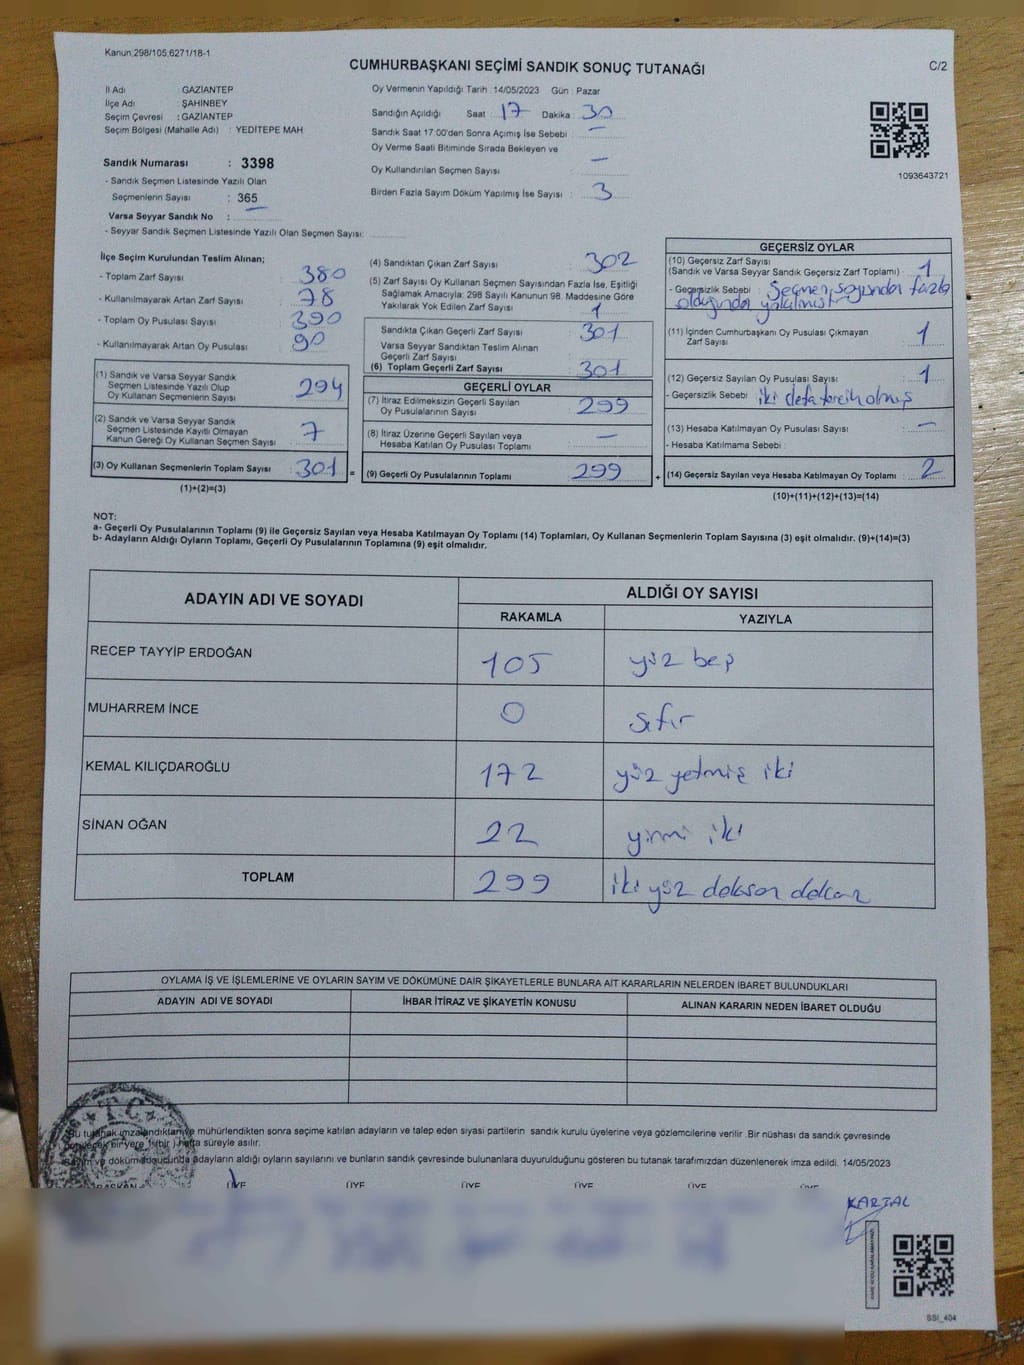 Kanun:298/105;6271/18-1
CUMHURBAŞKANI SEÇİMİ SANDIK SONUÇ TUTANAĞI
C/2
İl Adı GAZİANTEP
İlçe Adı : ŞAHİNBEY
Seçim Çevresi : GAZİANTEP
Seçim Bölgesi (Mahalle Adı) : YEDİTEPE MAH
Sandık Numarası : 3398
- Sandık Seçmen Listesinde Yazılı Olan
Seçmenlerin Sayısı : 365
Varsa Seyyar Sandık No :
- Seyyar Sandık Seçmen Listesinde Yazılı Olan Seçmen Sayısı:
Oy Vermenin Yapıldığı Tarih : 14/05/2023 Gün : Pazar
Sandığın Açıldığı Saat : 17 Dakika : 30
Sandık Saat 17:00'den Sonra Açımış İse Sebebi : —
Oy Verme Saati Bitiminde Sırada Bekleyen ve
Oy Kullandırılan Seçmen Sayısı : —
Birden Fazla Sayım Döküm Yapılmış İse Sayısı : 3
1093643721
İlçe Seçim Kurulundan Teslim Alınan;
- Toplam Zarf Sayısı : 380
- Kullanılmayarak Artan Zarf Sayısı : 78
- Toplam Oy Pusulası Sayısı : 390
- Kullanılmayarak Artan Oy Pusulası : 90
(1) Sandık ve Varsa Seyyar Sandık
Seçmen Listesinde Yazılı Olup
Oy Kullanan Seçmenlerin Sayısı : 294
(2) Sandık ve Varsa Seyyar Sandık
Seçmen Listesinde Kayıtlı Olmayan
Kanun Gereği Oy Kullanan Seçmen Sayısı : 7
(3) Oy Kullanan Seçmenlerin Toplam Sayısı : 301 =
(1)+(2)=(3)
(4) Sandıktan Çıkan Zarf Sayısı : 302
(5) Zarf Sayısı Oy Kullanan Seçmen Sayısından Fazla İse, Eşitliği
Sağlamak Amacıyla; 298 Sayılı Kanunun 98. Maddesine Göre
Yakılarak Yok Edilen Zarf Sayısı : 1
Sandıkta Çıkan Geçerli Zarf Sayısı : 301
Varsa Seyyar Sandıktan Teslim Alınan
Geçerli Zarf Sayısı :
(6) Toplam Geçerli Zarf Sayısı : 301
GEÇERLİ OYLAR
(7) İtiraz Edilmeksizin Geçerli Sayılan
Oy Pusulalarının Sayısı : 299
(8) İtiraz Üzerine Geçerli Sayılan veya
Hesaba Katılan Oy Pusulası Toplamı : —
(9) Geçerli Oy Pusulalarının Toplamı : 299 +
GEÇERSİZ OYLAR
(10) Geçersiz Zarf Sayısı
(Sandık ve Varsa Seyyar Sandık Geçersiz Zarf Toplamı) : 1
- Geçersizlik Sebebi : Seçmen sayısından fazla
olduğundan yakılmıştır
(11) İçinden Cumhurbaşkanı Oy Pusulası Çıkmayan
Zarf Sayısı : 1
(12) Geçersiz Sayılan Oy Pusulası Sayısı : 1
- Geçersizlik Sebebi : iki defa tercih olmış
(13) Hesaba Katılmayan Oy Pusulası Sayısı : —
- Hesaba Katılmama Sebebi :
(14) Geçersiz Sayılan veya Hesaba Katılmayan Oy Toplamı : 2
(10)+(11)+(12)+(13)=(14)
NOT:
a- Geçerli Oy Pusulalarının Toplamı (9) ile Geçersiz Sayılan veya Hesaba Katılmayan Oy Toplamı (14) Toplamları, Oy Kullanan Seçmenlerin Toplam Sayısına (3) eşit olmalıdır. (9)+(14)=(3)
b- Adayların Aldığı Oyların Toplamı, Geçerli Oy Pusulalarının Toplamına (9) eşit olmalıdır.
ADAYIN ADI VE SOYADI ALDIĞI OY SAYISI
RAKAMLA YAZIYLA
RECEP TAYYİP ERDOĞAN 105 yüz beş
MUHARREM İNCE 0 sıfır
KEMAL KILIÇDAROĞLU 172 yüz yetmiş iki
SİNAN OĞAN 22 yirmi iki
TOPLAM 299 iki yüz doksan dokuz
OYLAMA İŞ VE İŞLEMLERİNE VE OYLARIN SAYIM VE DÖKÜMÜNE DAİR ŞİKAYETLERLE BUNLARA AİT KARARLARIN NELERDEN İBARET BULUNDUKLARI
ADAYIN ADI VE SOYADI İHBAR İTİRAZ VE ŞİKAYETİN KONUSU ALINAN KARARIN NEDEN İBARET OLDUĞU
T.C.
Bu tutanak imzalandıktan ve mühürlendikten sonra seçime katılan adayların ve talep eden siyasi partilerin sandık kurulu üyelerine veya gözlemcilerine verilir. Bir nüshası da sandık çevresinde
bir yere hafta süreyle asılır.
adayların aldığı oyların sayılarını ve bunların sandık çevresinde bulunanlara duyurulduğunu gösteren bu tutanak tarafımızdan düzenlenerek imza edildi. 14/05/2023
BAŞKAN ÜYE ÜYE ÜYE ÜYE ÜYE ÜYE
KARTAL
SSI_404